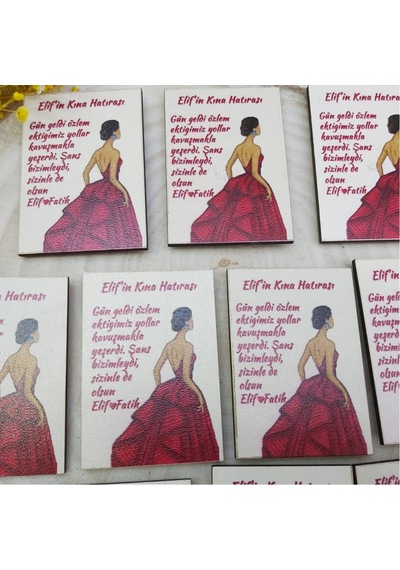 Elif'in Kına Hatırası
Gün geldi özlem
ektiğimiz yollar
kavuşmakla
yeşerdi. Şans
bizimleydi,
sizinle de
olsun
Elif♥Fatih
Elif'in Kına Hatırası
Gün geldi özlem
ektiğimiz yollar
kavuşmakla
yeşerdi. Şans
bizimleydi,
sizinle de
olsun
Elif♥Fatih
Elif'in Kına
Gün geldi özlem
ektiğimiz
kavuşmakla
yeşerdi. Şans
bizimleydi,
sizinle de
olsun
Elif♥Fatih
Kına Hatırası
özlem
yollar
Şans
Fatih
Elif'in Kına Hatırası
Gün geldi özlem
ektiğimiz yollar
kavuşmakla
yeşerdi. Şans
bizimleydi,
sizinle de
olsun
Elif♥Fatih
Elif'in Kına Hatırası
Gün geldi özlem
ektiğimiz yollar
kavuşmakla
yeşerdi. Şans
bizimleydi,
sizinle de
olsun
Elif♥Fatih
Elif'in
Gün
sizinle
olsun
Elif♥
Elif'in Kına Hatırası
Elif'in